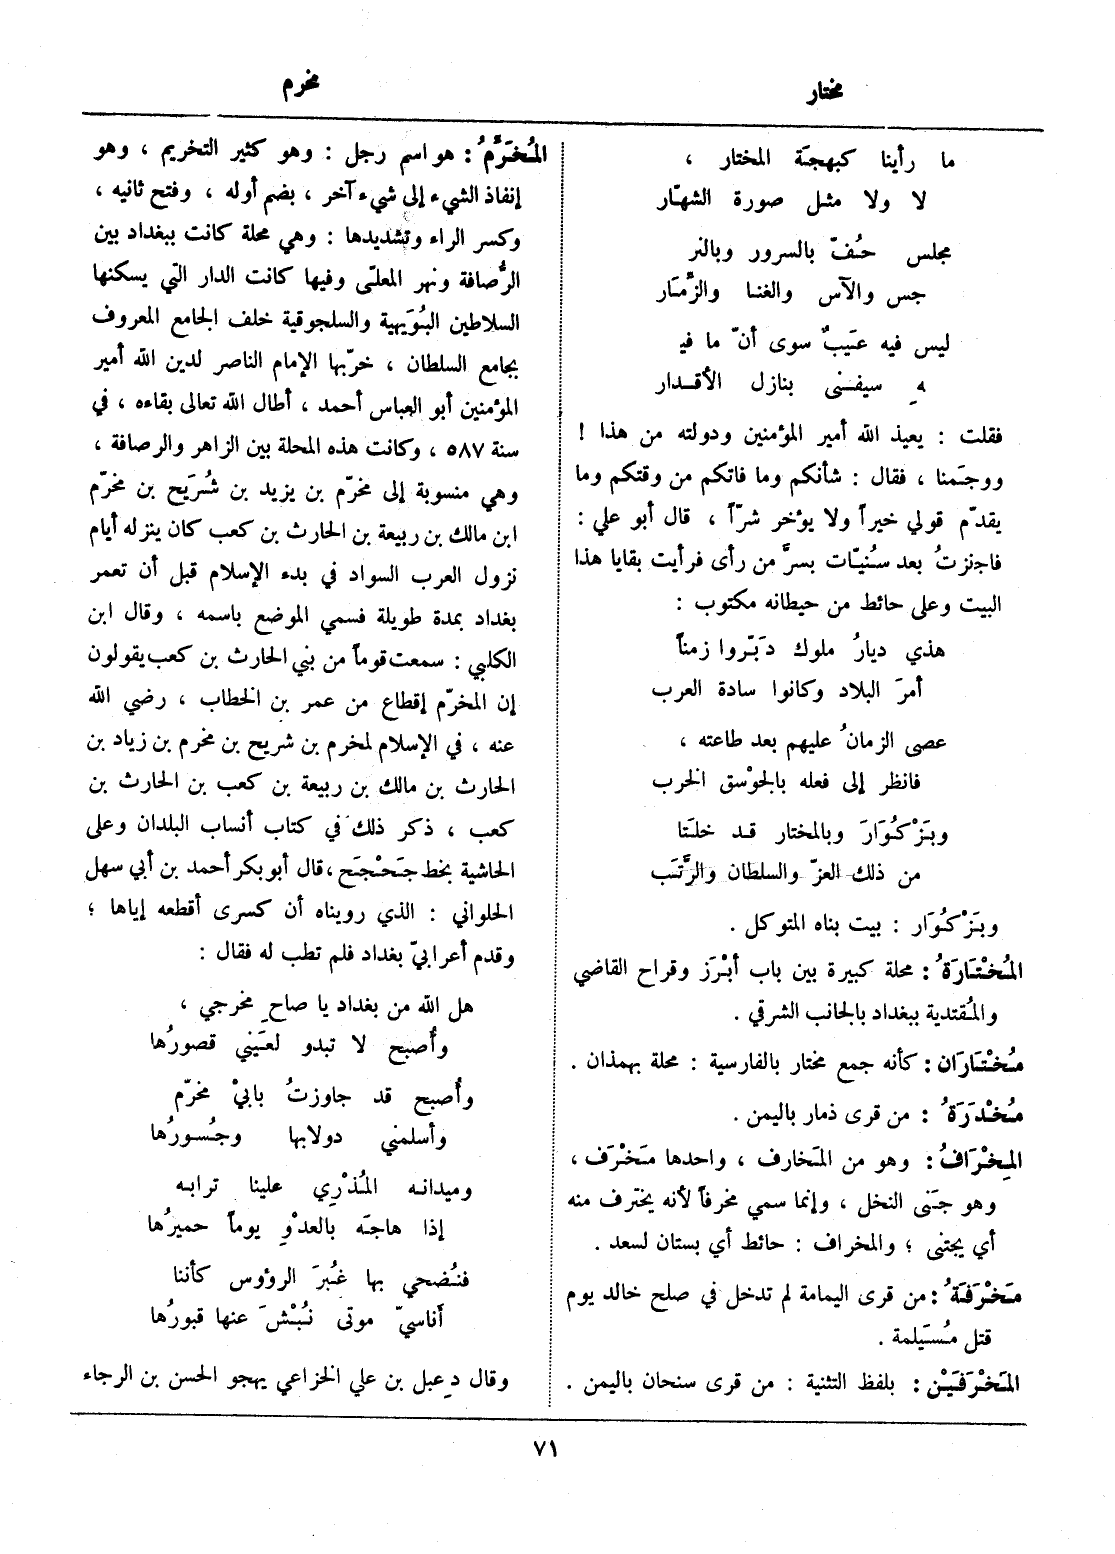 مختار
مخرم
ما رأينا كبهجة المختار ،
لا ولا مثل صورة الشهّار
مجلس حُفّ بالسرور وبالنر
جس والآس والغنا والزَّمار
ليس فيه عَيبٌ سوى أنّ ما في
هِ سيفنى بنازل الأقدار
فقلت : يعيذ الله أمير المؤمنين ودولته من هذا !
ووجَمنا ، فقال : شأنكم وما فاتكم من وقتكم وما
يقدّم قولي خيراً ولا يؤخر شرّاً ، قال أبو علي :
فاجتزتُ بعد سُنيّات بسرَّ من رأى فرأيت بقايا هذا
البيت وعلى حائط من حيطانه مكتوب :
هذي ديارُ ملوك دَبّروا زمناً
أمرَ البلاد وكانوا سادة العرب
عصى الزمانُ عليهم بعد طاعته ،
فانظر إلى فعله بالجوْسق الخرب
وبَزْكُوَارَ وبالمختار قد خلَتا
من ذلك العزّ والسلطان والرَّتَب
وبَزْكُوَار : بيت بناه المتوكل .
المُخْتَارَةُ : محلة كبيرة بين باب أبْرَز وقراح القاضي
والمُقتدية ببغداد بالجانب الشرقي .
مُخْتَارَان : كأنه جمع مختار بالفارسية : محلة بهمذان .
مُخْدَرَةُ : من قرى ذمار باليمن .
المِخْرَافُ : وهو من المَخارف ، واحدها مَخْرَف ،
وهو جَنى النخل ، وإنما سمي مخرفاً لأنه يخترف منه
أي يجتنى ؛ والمخراف : حائط أي بستان لسعد .
مَخْرَفَةُ : من قرى اليمامة لم تدخل في صلح خالد يوم
قتل مُسَيلمة .
المَخْرَفَيْن : بلفظ التثنية : من قرى سنحان باليمن .
المُخَرَّمُ : هو اسم رجل : وهو كثير التخريم ، وهو
إنفاذ الشيء إلى شيء آخر ، بضم أوله ، وفتح ثانيه ،
وكسر الراء وتشديدها : وهي محلة كانت ببغداد بين
الرُّصافة ونهر المعلّى وفيها كانت الدار التي يسكنها
السلاطين البُوَيهية والسلجوقية خلف الجامع المعروف
بجامع السلطان ، خرّبها الإمام الناصر لدين الله أمير
المؤمنين أبو العباس أحمد ، أطال الله تعالى بقاءه ، في
سنة ٥٨٧ ، وكانت هذه المحلة بين الزاهر والرصافة ،
وهي منسوبة إلى مخرّم بن يزيد بن شُرَيح بن مخرّم
ابن مالك بن ربيعة بن الحارث بن كعب كان ينزله أيام
نزول العرب السواد في بدء الإسلام قبل أن تعمر
بغداد بمدة طويلة فسمي الموضع باسمه ، وقال ابن
الكلبي : سمعت قوماً من بني الحارث بن كعب يقولون
إن المخرّم إقطاع من عمر بن الخطاب ، رضي الله
عنه ، في الإسلام لمخرم بن شريح بن مخرم بن زياد بن
الحارث بن مالك بن ربيعة بن كعب بن الحارث بن
كعب ، ذكر ذلك في كتاب أنساب البلدان وعلى
الحاشية بخط جَحْجَح ، قال أبو بكر أحمد بن أبي سهل
الحلواني : الذي رويناه أن كسرى أقطعه إياها ؛
وقدم أعرابيّ بغداد فلم تطب له فقال :
هل الله من بغداد يا صاحِ مخرجي ،
وأُصبح لا تبدو لعَيني قصورُها
وأُصبح قد جاوزتُ بابيْ مخرّم
وأسلمني دولابها وجُسورُها
وميدانه المُذْرِي علينا ترابه
إذا هاجَه بالعدْوِ يوماً حميرُها
فنُضحي بها غُبرَ الرؤوس كأننا
أناسيّ موتى نُبْشَ عنها قبورُها
وقال دِعبل بن علي الخزاعي يهجو الحسن بن الرجاء
٧١